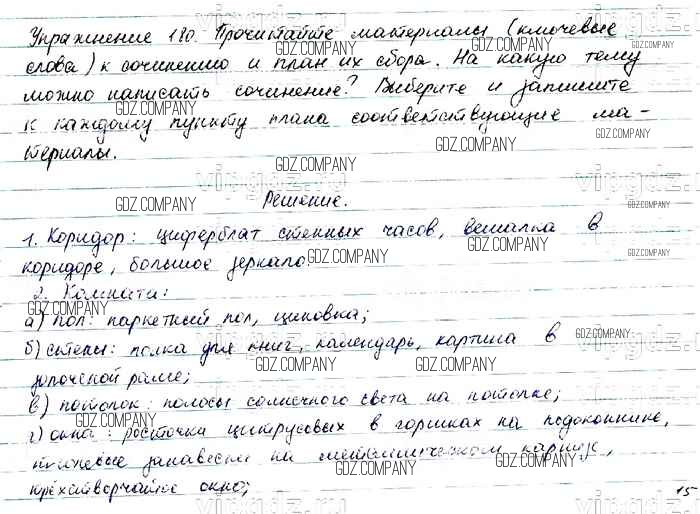 Упражнение 180. Прочитайте материалы (ключевые
слова) к сочинению и план их сбора. На какую тему
можно написать сочинение? Выберите и запишите
к каждому пункту плана соответствующие ма-
териалы.
Решение.
1. Коридор: циферблат стенных часов, вешалка в
коридоре, большое зеркало.
2. Комната:
а) пол: паркетный пол, циновка;
б) стены: полка для книг, календарь, картина в
золоченой раме;
в) потолок: полосы солнечного света на потолке;
г) окна: росточки цитрусовых в горшках на подоконнике,
занавески на металлическом карнизе,
трёхстворчатое окно;
15